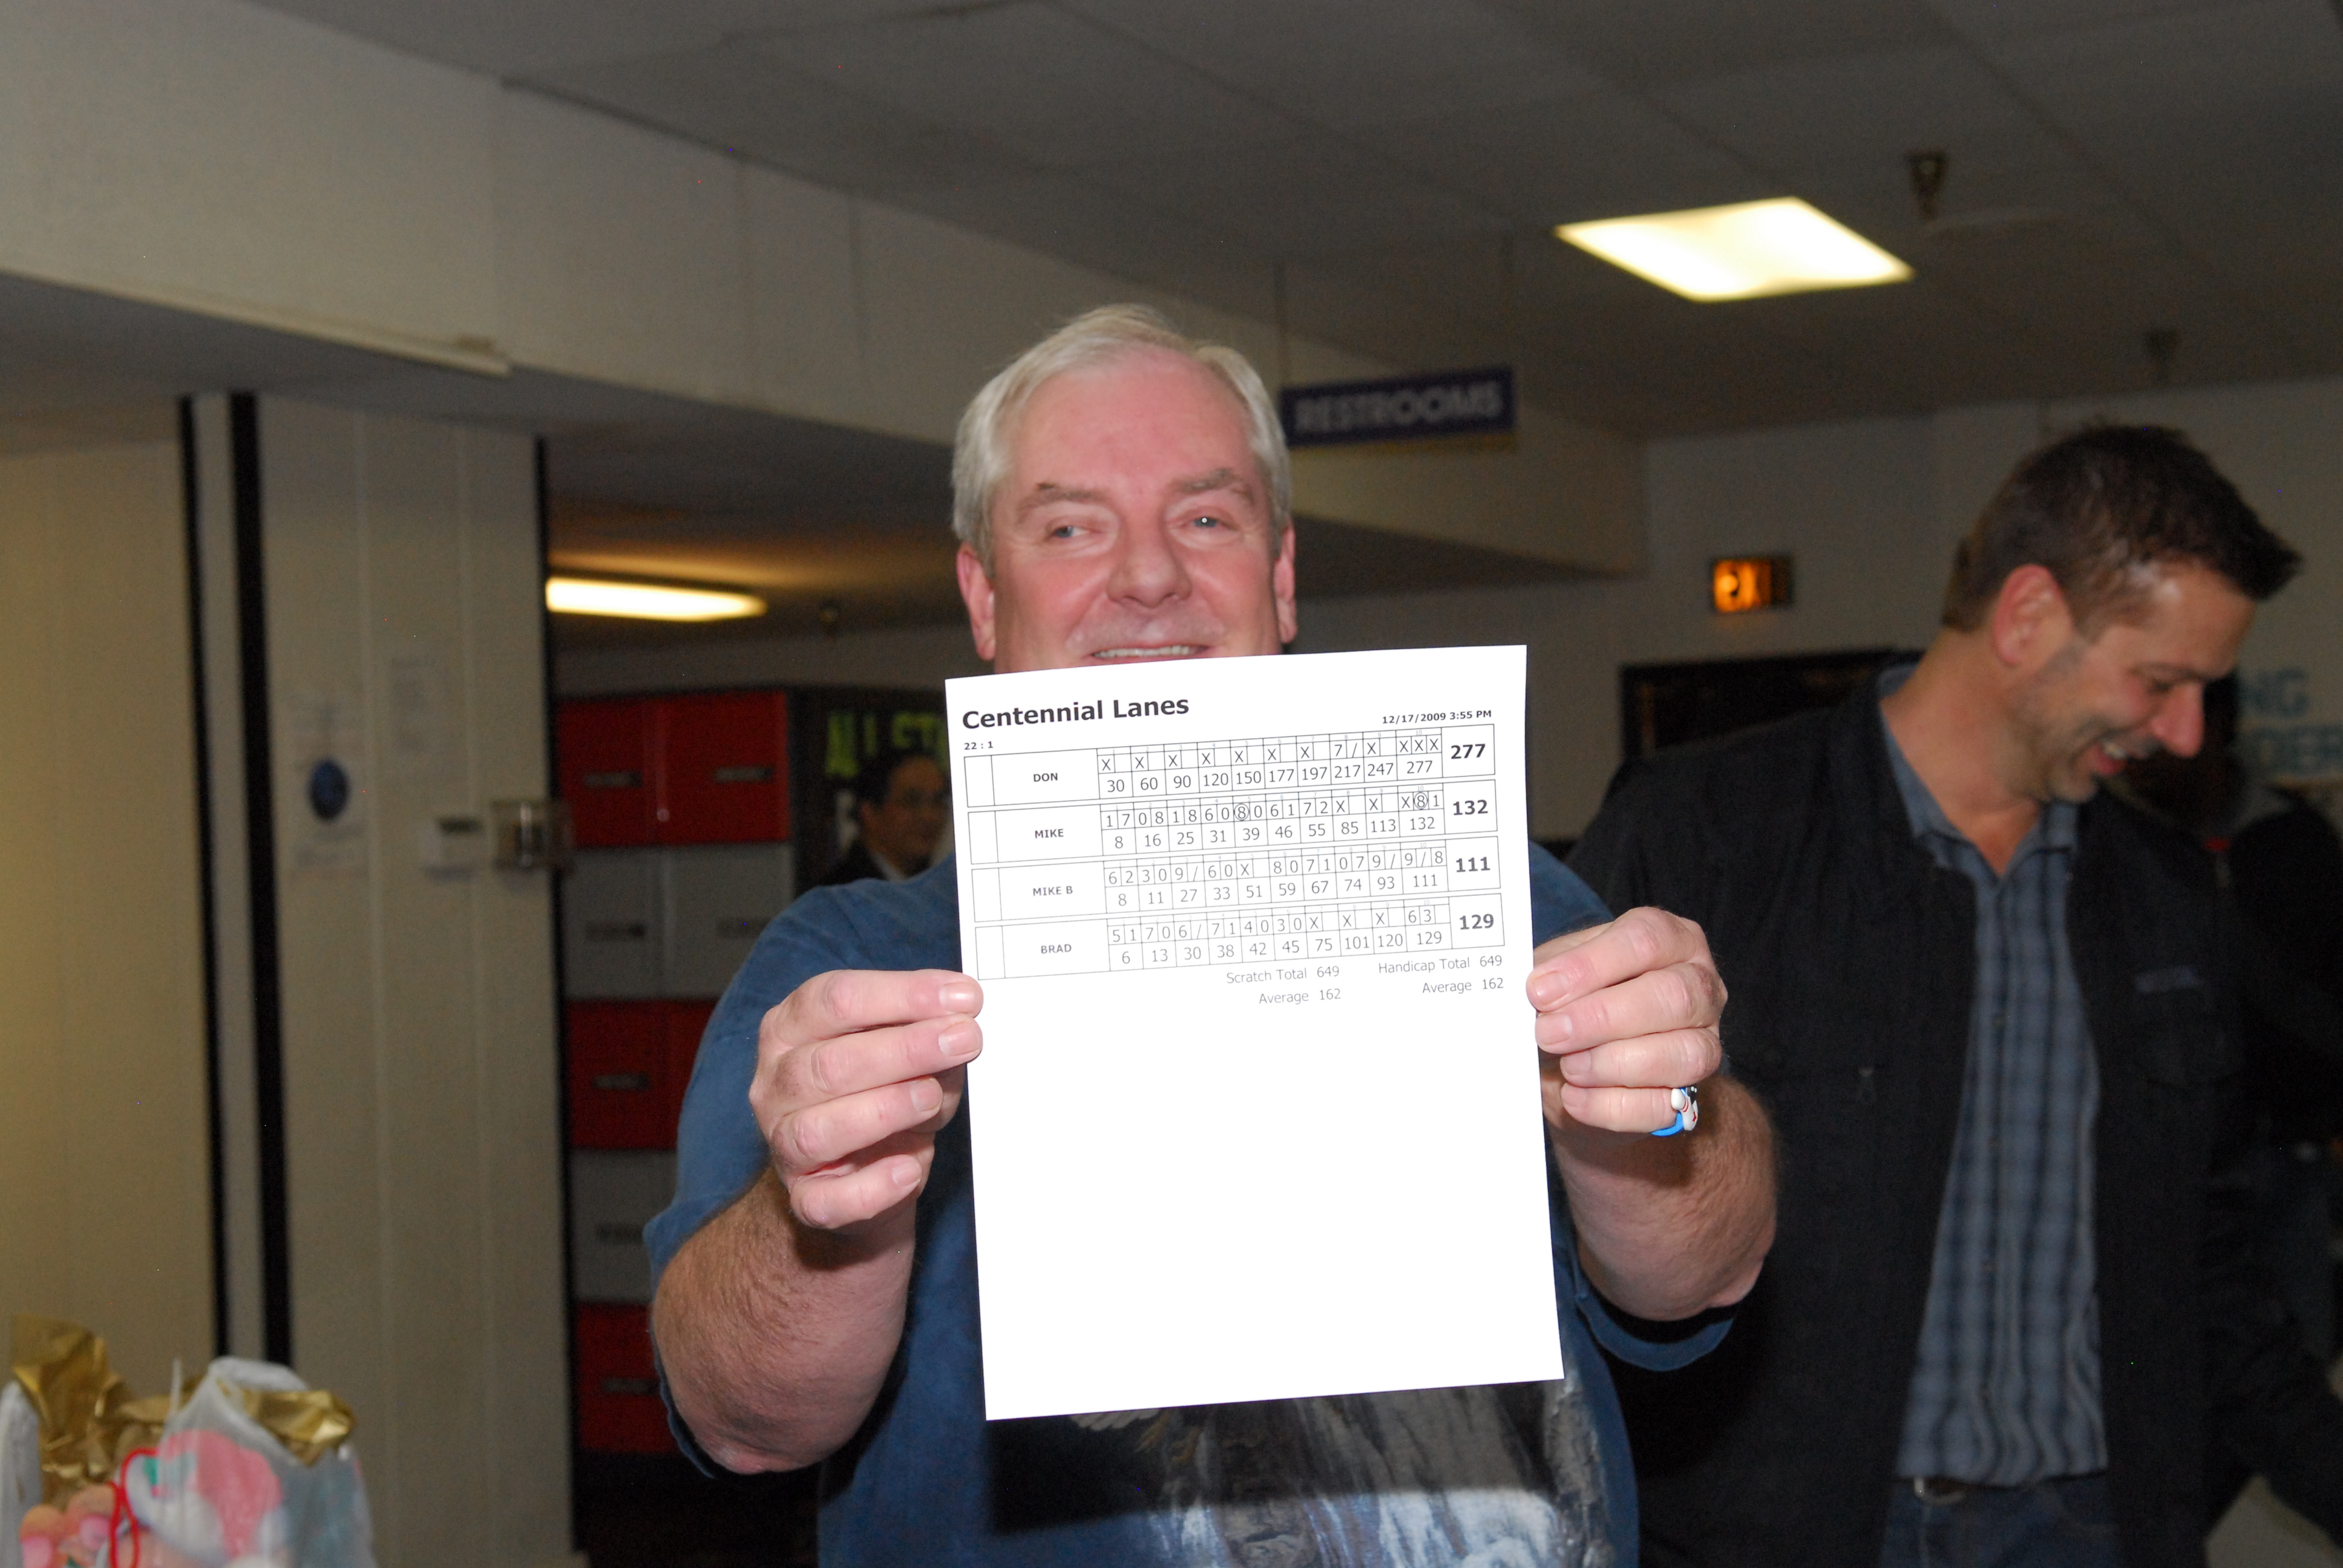 RESTROOMS
ALL ST
NG
DER
Centennial Lanes
12/17/2009 3:55 PM
22 : 1
DON X X X X X X X 7 / X X X X 277
30 60 90 120 150 177 197 217 247 277
MIKE 1 7 0 8 1 8 6 0 8 0 6 1 7 2 X X X 8 1 132
8 16 25 31 39 46 55 85 113 132
MIKE B 6 2 3 0 9 / 6 0 X 8 0 7 1 0 7 9 / 9 / 8 111
8 11 27 33 51 59 67 74 93 111
BRAD 5 1 7 0 6 / 7 1 4 0 3 0 X X X 6 3 129
6 13 30 38 42 45 75 101 120 129
Scratch Total 649 Handicap Total 649
Average 162 Average 162